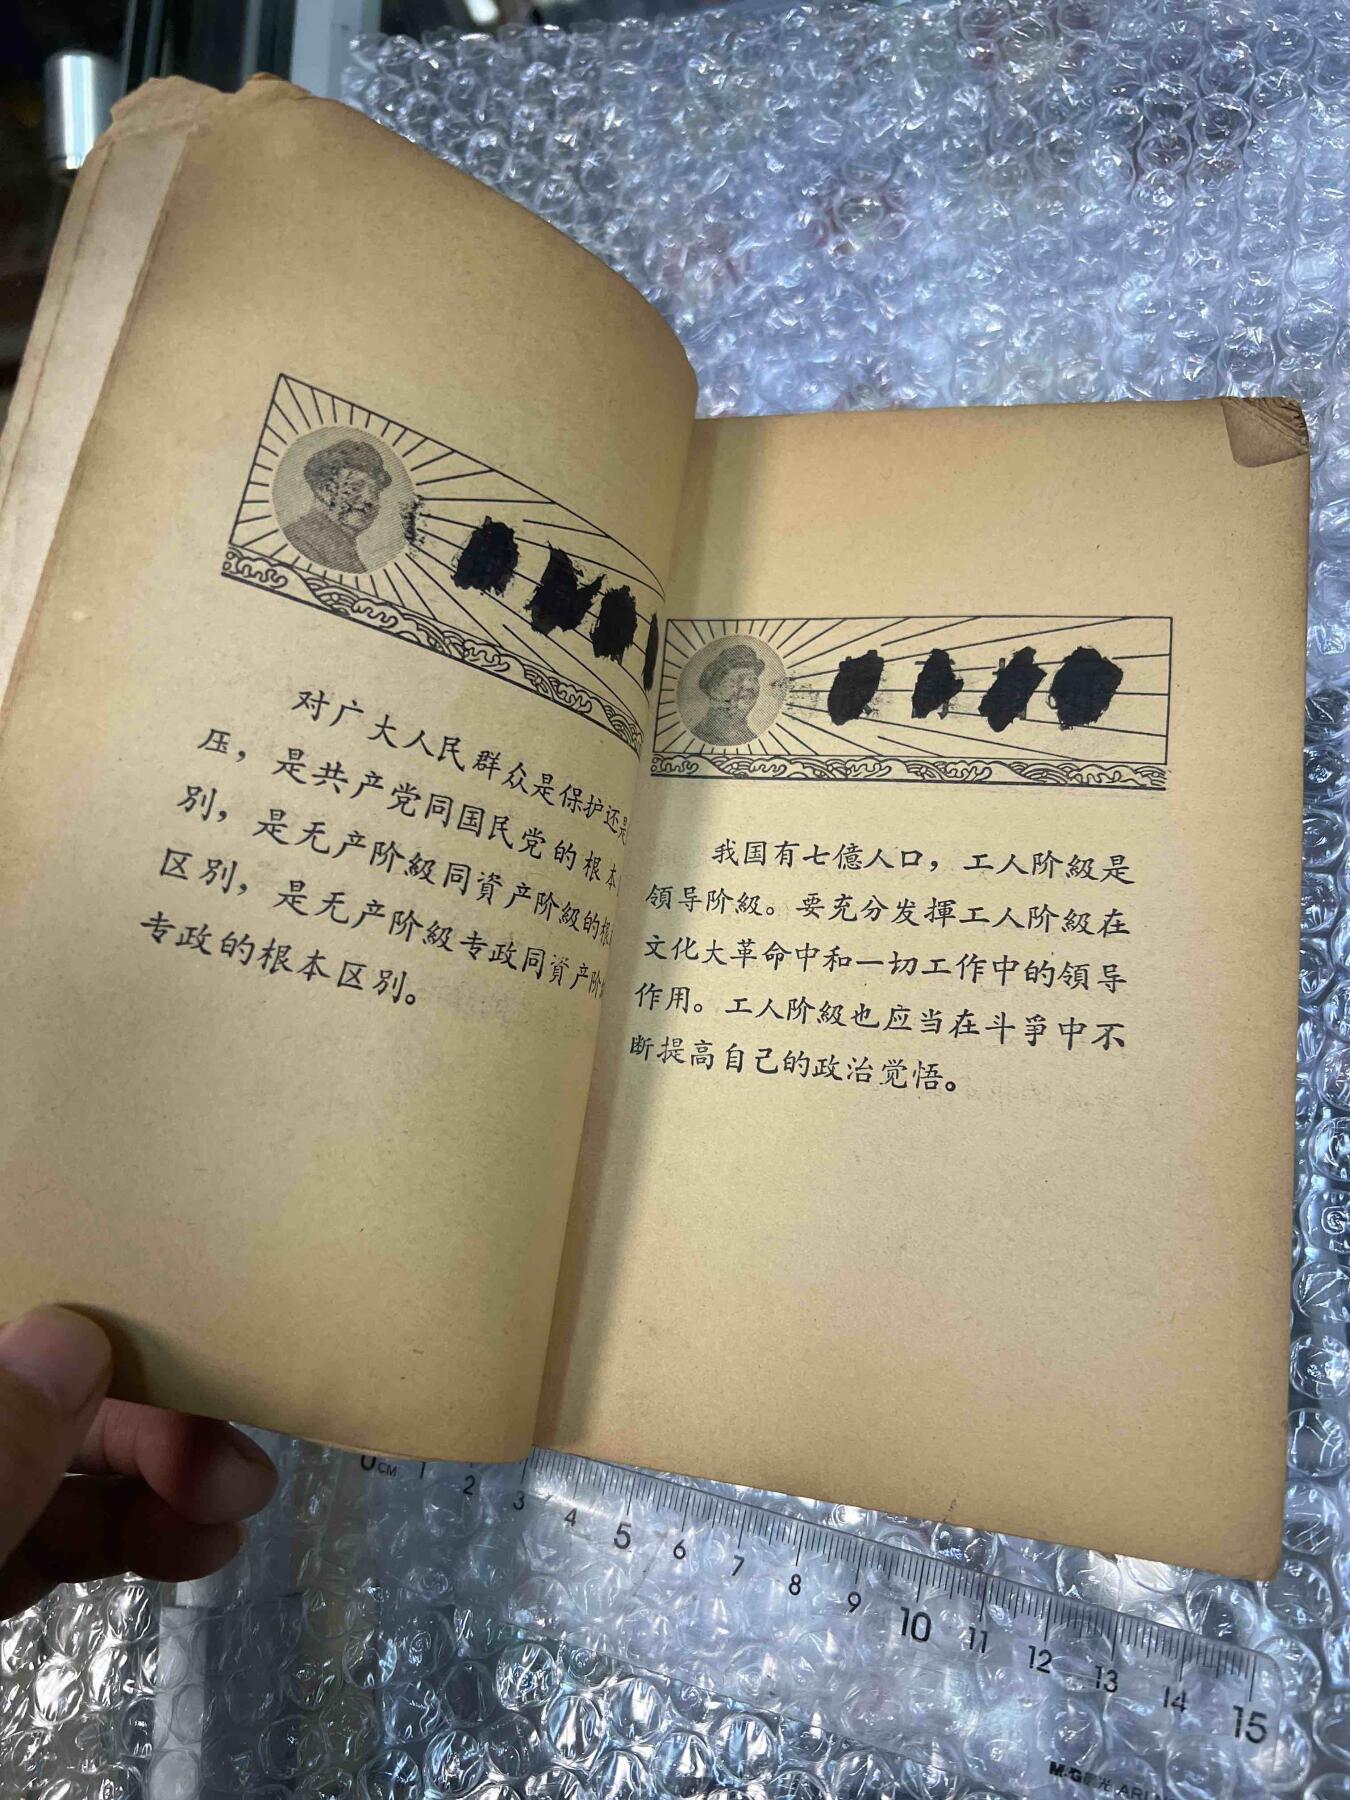 对广大人民群众是保护还是
压，是共产党同国民党的根本
别，是无产阶級同資产阶級的根
区别，是无产阶級专政同資产阶
专政的根本区别。
我国有七億人口，工人阶級是
領导阶級。要充分发揮工人阶級在
文化大革命中和一切工作中的領导
作用。工人阶級也应当在斗爭中不
断提高自己的政治觉悟。
0CM 1 2 3 4 5 6 7 8 9 10 11 12 13 14 15
M&G 晨光